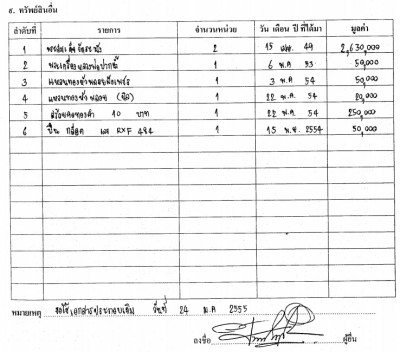 ๙. ทรัพย์สินอื่น
ลำดับที่ รายการ จำนวนหน่วย วัน เดือน ปี ที่ได้มา มูลค่า
1 2 15 49 2,630,000
2 พระเครื่อง หลวงพ่อปากน้ำ 1 6 พ.ค 53 50,000
3 แหวนทองคำ พลอย 1 3 พ.ค 54 50,000
4 แหวนทองคำ พลอย (นิล) 1 22 พ.ค 54 20,000
5 สร้อยคอทองคำ 10 บาท 1 22 พ.ค 54 250,000
6 ปืน กล็อค เลข RXF 484 1 15 พ.ย. 2554 50,000
หมายเหตุ ขอใช้เอกสารประกอบเดิม วันที่ 24 ม.ค 2555
ลงชื่อ ผู้ยื่น